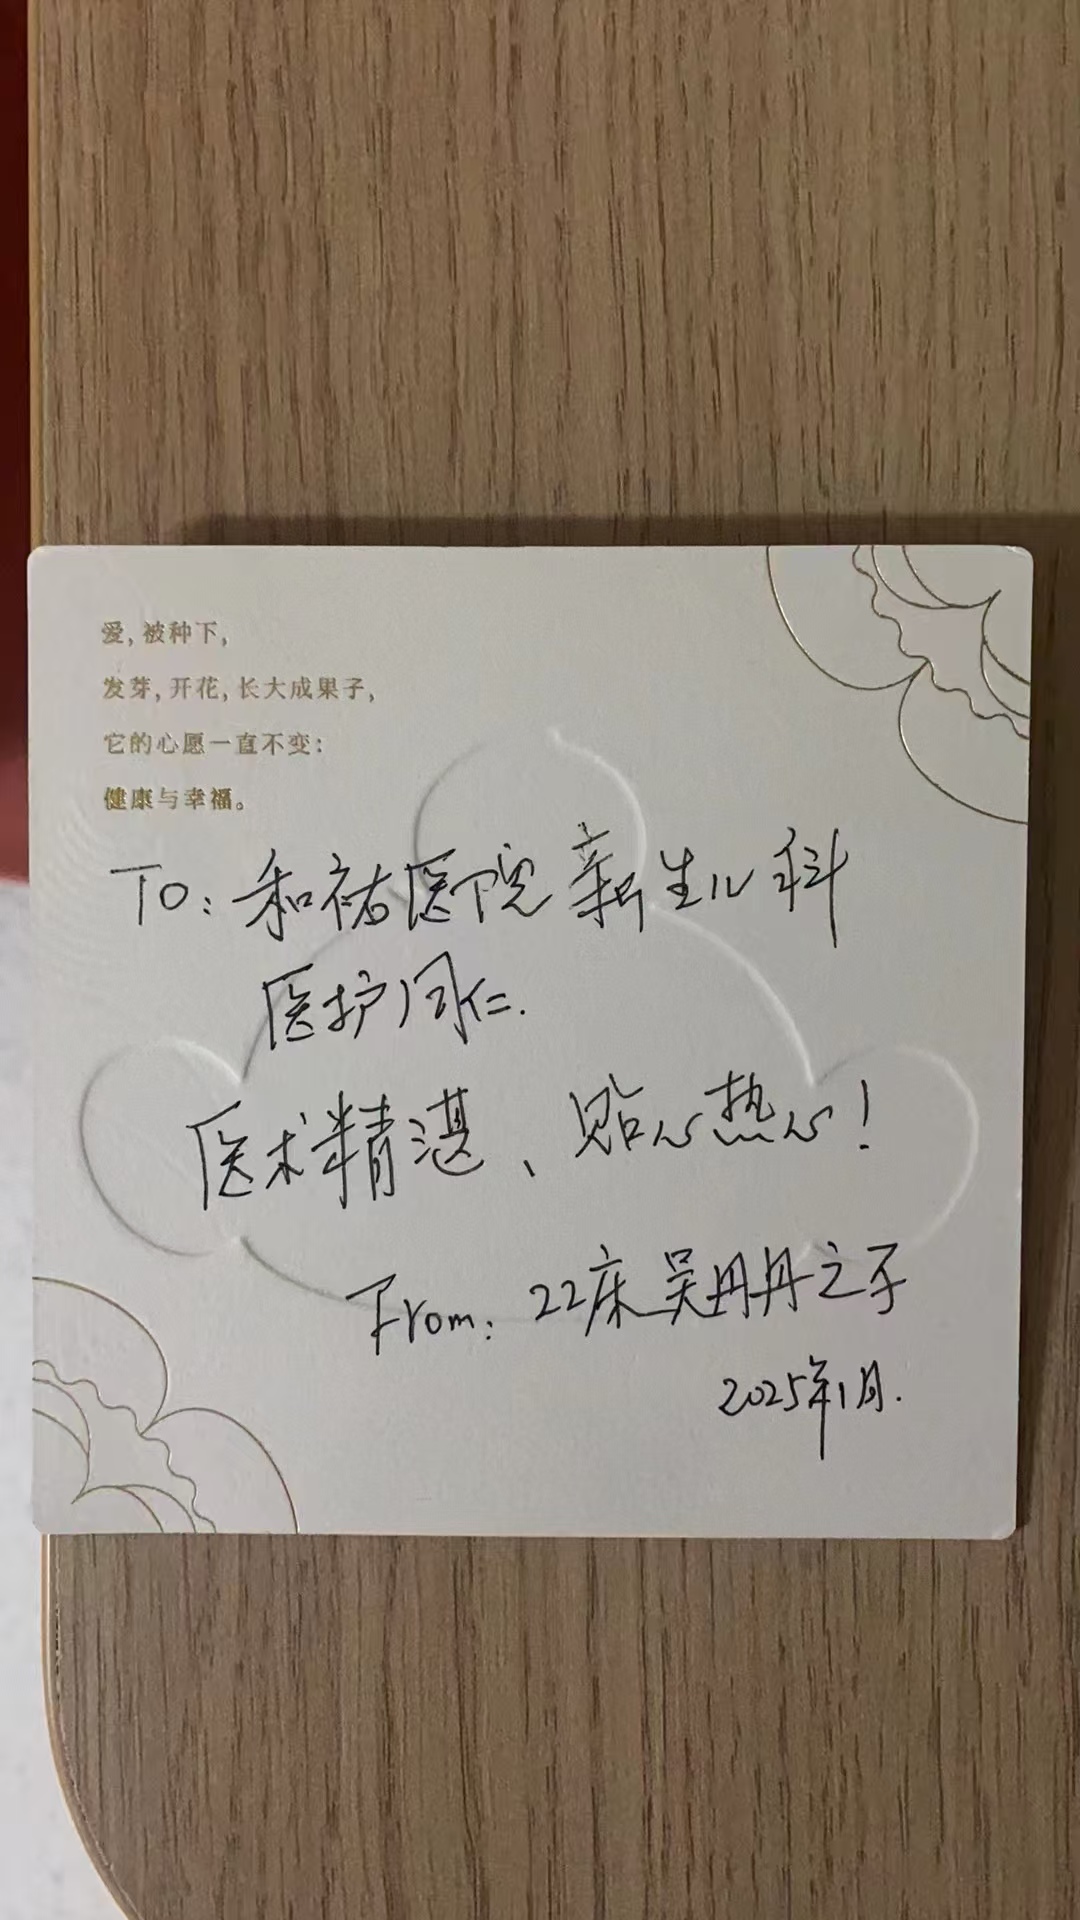 爱，被种下，
发芽，开花，长大成果子，
它的心愿一直不变：
健康与幸福。
TO: 和祐医院新生儿科
医护同仁.
医术精湛、贴心热心！
From: 22床吴丹丹之子
2025年1月.